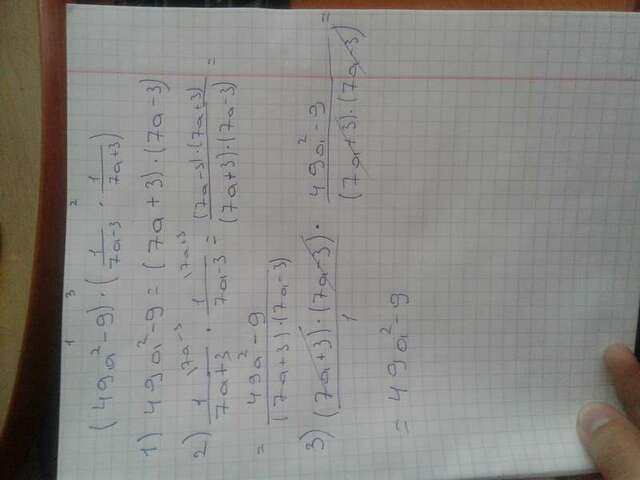 1 3 2
(49a² - 9) · (1/(7a-3) · 1/(7a+3))
1) 49a² - 9 = (7a + 3) · (7a - 3)
2) 1\7a-3/(7a+3) · 1\7a+3/(7a-3) = (7a-3) · (7a+3)/(7a+3) · (7a-3) =
= 49a² - 9/(7a+3) · (7a-3)
3) (7a+3) · (7a-3)/1 · 49a² - 9/(7a+3) · (7a-3) =
= 49a² - 9